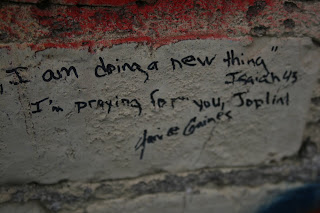 "I am doing a new thing"
Isaiah 43
I'm praying for you, Joplin!
Janice Gaines